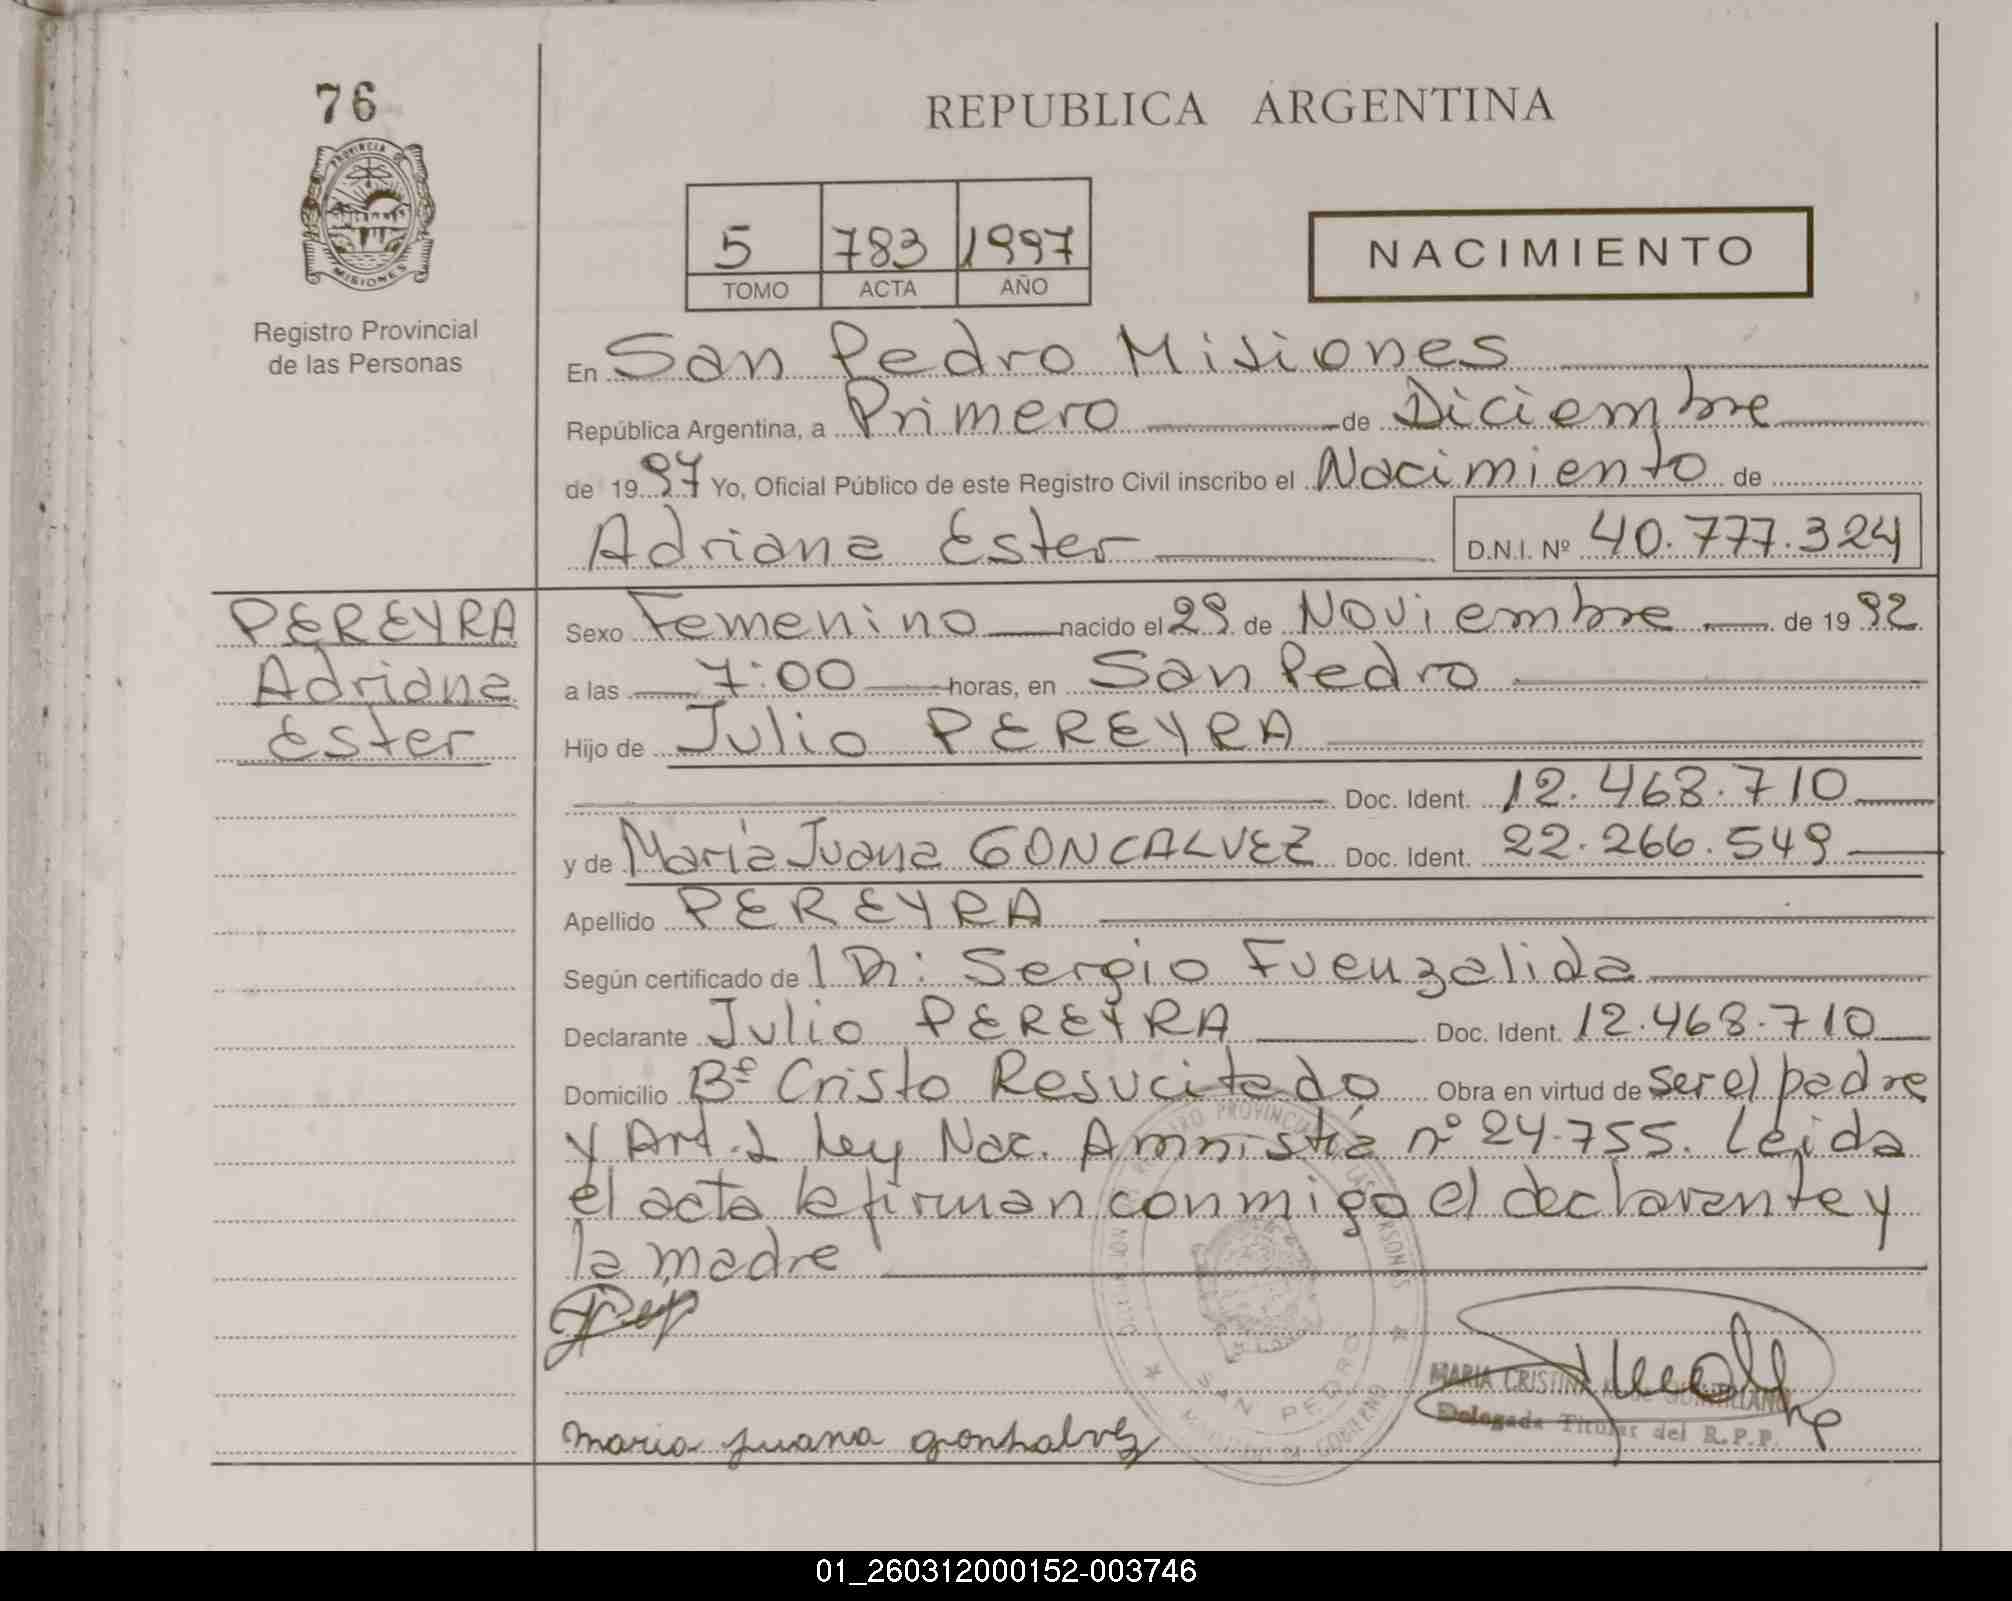 76
PROVINCIA DE
MISIONES
Registro Provincial
de las Personas
REPUBLICA ARGENTINA
5 783 1997
TOMO ACTA AÑO
NACIMIENTO
En San Pedro Misiones
República Argentina, a Primero de Diciembre
de 1997 Yo, Oficial Público de este Registro Civil inscribo el Nacimiento de
Adriana Ester D.N.I. Nº 40.777.324
PEREYRA
Adriana
Ester
Sexo Femenino nacido el 29 de Noviembre de 1992
a las 7:00 horas, en San Pedro
Hijo de Julio PEREYRA
Doc. Ident. 12.468.710
y de María Juana GONCALVEZ Doc. Ident. 22.266.549
Apellido PEREYRA
Según certificado de l Dr: Sergio Fuenzalida
Declarante Julio PEREYRA Doc. Ident. 12.468.710
Domicilio Bº Cristo Resucitado Obra en virtud de ser el padre
y Art. 2 Ley Nac. Amnistía nº 24.755. Leida
el acta la firman conmigo el declarante y
la madre
MARIA CRISTINA
Delegada Titular del R.P.P.
maria juana gonsalvez
SAN PEDRO
01_260312000152-003746